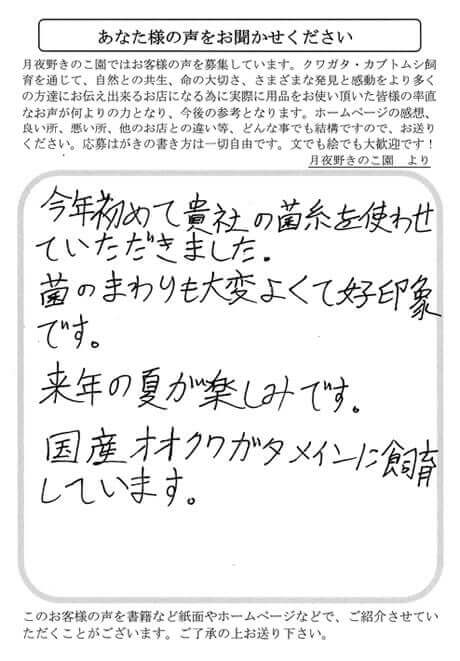 あなた様の声をお聞かせください
月夜野きのこ園ではお客様の声を募集しています。クワガタ・カブトムシ飼
育を通じて、自然との共生、命の大切さ、さまざまな発見と感動をより多く
の方達にお伝え出来るお店になる為に実際に用品をお使い頂いた皆様の率直
なお声が何よりの力となり、今後の参考となります。ホームページの感想、
良い所、悪い所、他のお店との違い等、どんな事でも結構ですので、お送り
ください。応募はがきの書き方は一切自由です。文でも絵でも大歓迎です！
月夜野きのこ園　より
今年初めて貴社の菌糸を使わせ
ていただきました.
菌のまわりも大変よくて好印象
です。
来年の夏が楽しみです。
国産オオクワガタメインに飼育
しています。
このお客様の声を書籍など紙面やホームページなどで、ご紹介させてい
ただくことがございます。ご了承の上お送り下さい。